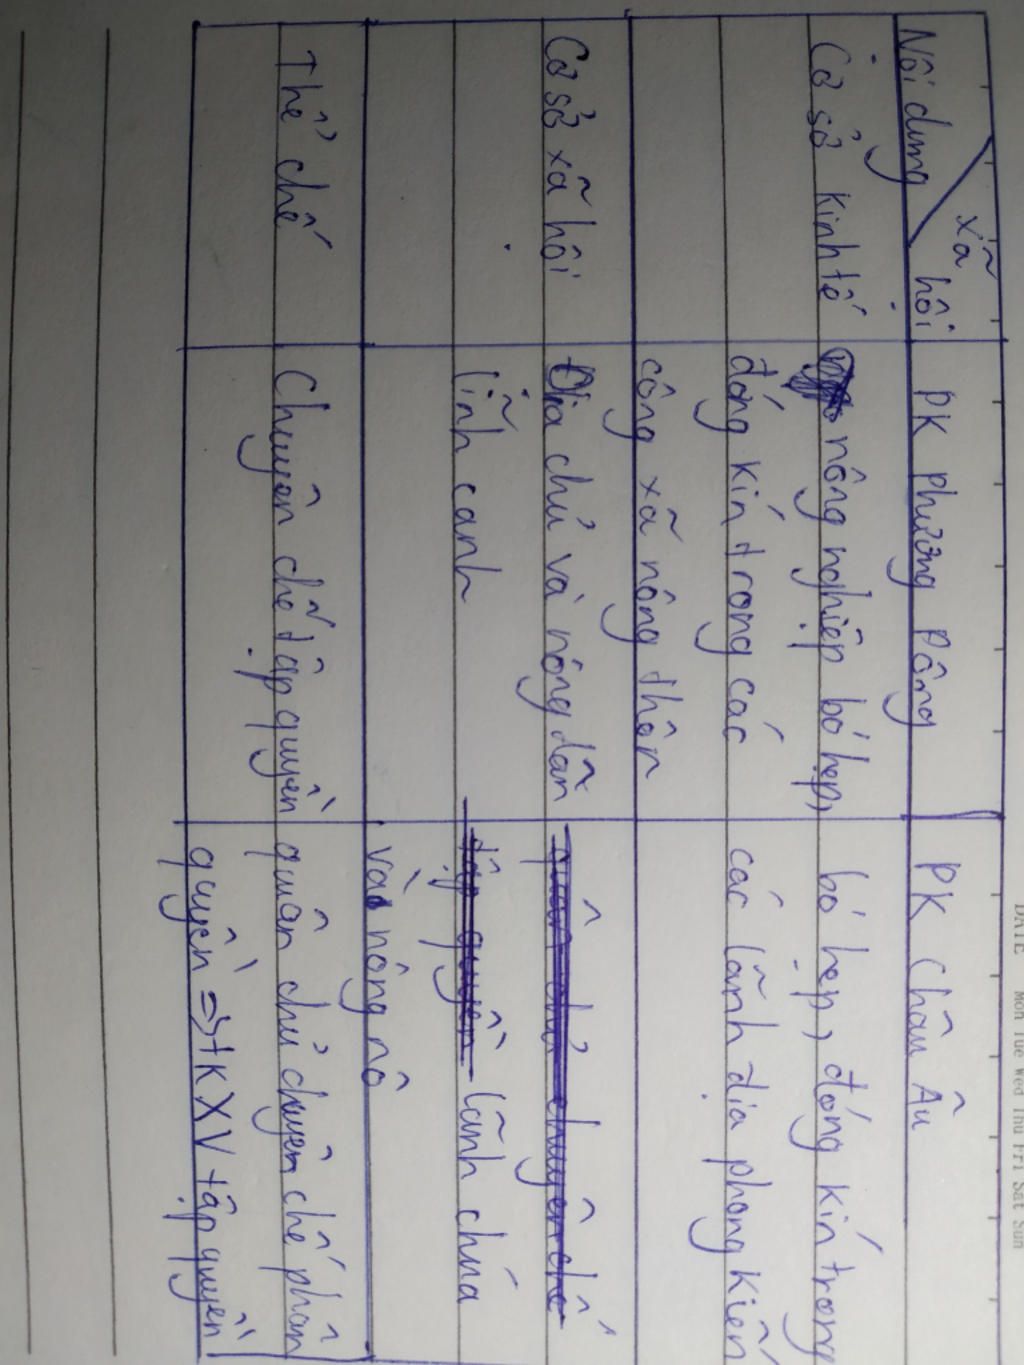 DATE Mon Tue Wed Thu Fri Sat Sun
xã hội
Nội dung
PK phương Đông
PK Châu Âu
Cơ sở kinh tế
nông nghiệp bó hẹp,
đóng kín trong các
công xã nông thôn
bó hẹp, đóng kín trong
các lãnh địa phong kiến
Cơ sở xã hội
Địa chủ và nông dân
lĩnh canh
quân chủ chuyên chế
tập quyền lãnh chúa
và nông nô
Thể chế
Chuyên chế tập quyền
quân chủ chuyên chế phân
quyền => tk XV tập quyền